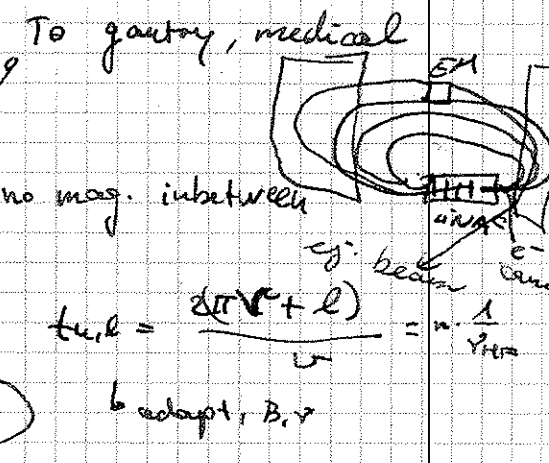 To gantry, medical
EM
no mag. inbetween
LINAC
ej. beam
e-
t_{u,l} = 2(πr + l) / v = n · 1/ν_{HF}
adapt, B, r